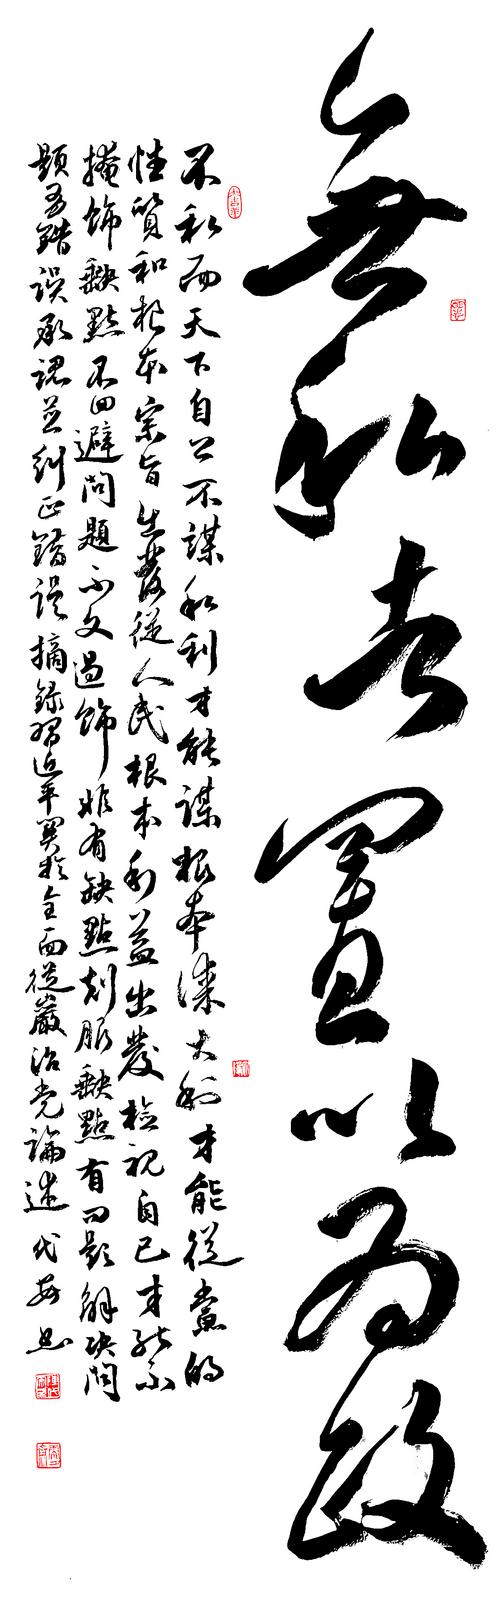 無私者置以為政
不私而天下自公不謀私利才能謀根本謀大利才能從黨的
性質和根本宗旨出發從人民根本利益出發檢視自己才能不
掩飾缺點不回避問題不文過飾非有缺點尅服缺點有問題解決問
題有錯誤承認並糾正錯誤摘錄習近平關於全面從嚴治党論述